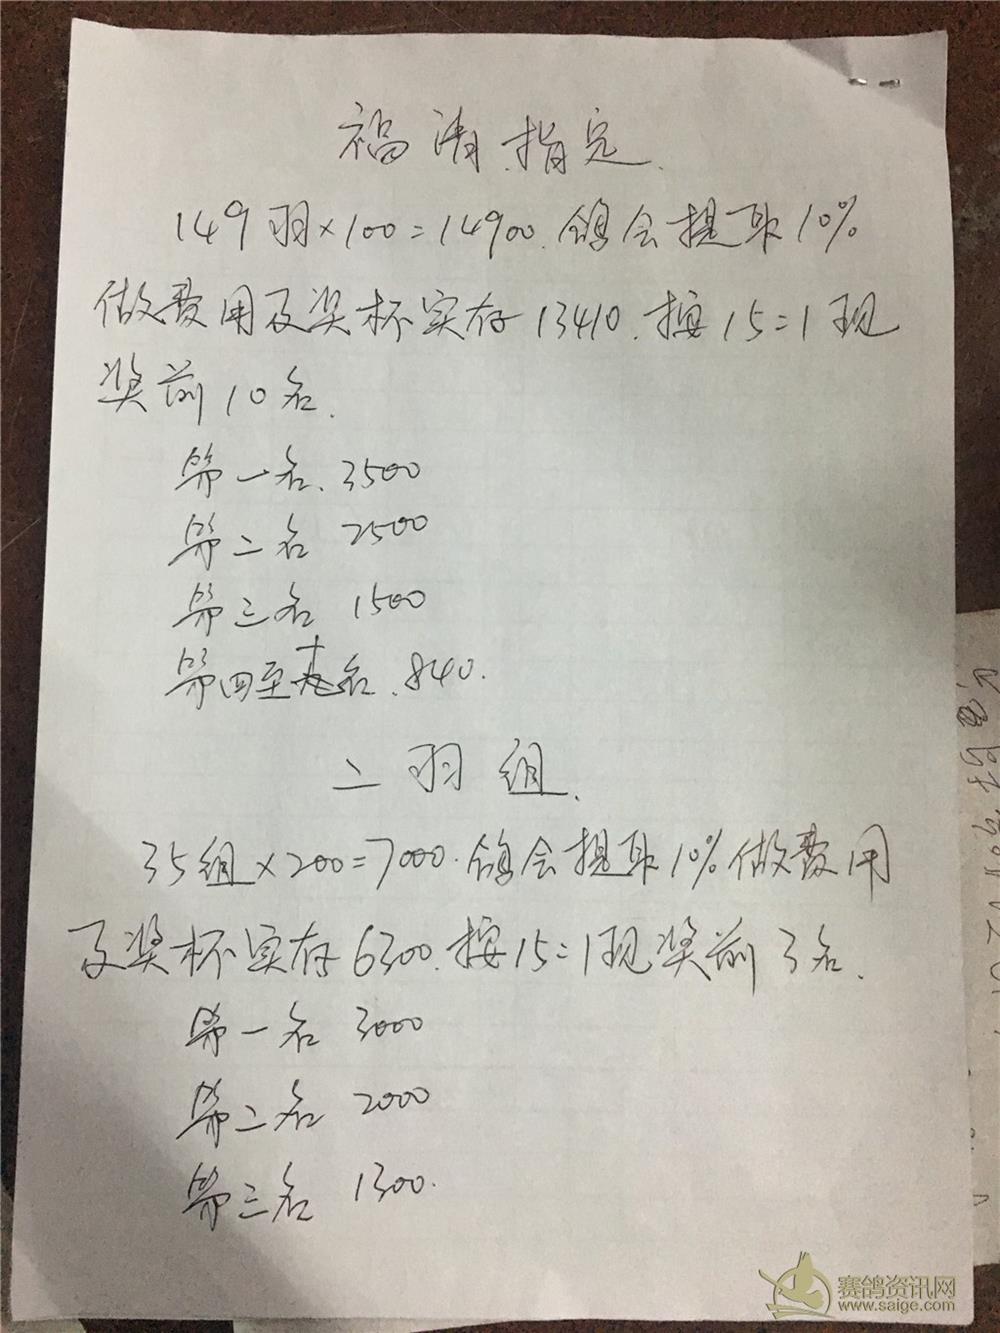 福清指定.
149羽×100=14900.鸽会提取10%
做费用及奖杯实存13410.按15=1现
奖前10名.
第一名.3500
第二名 2500
第三名 1500
第四至十名.840.
二羽组.
35组×200=7000.鸽会提取10%做费用
及奖杯实存6300.按15=1现奖前3名.
第一名 3000
第二名 2000
第三名 1300.
赛鸽资讯网
www.saige.com